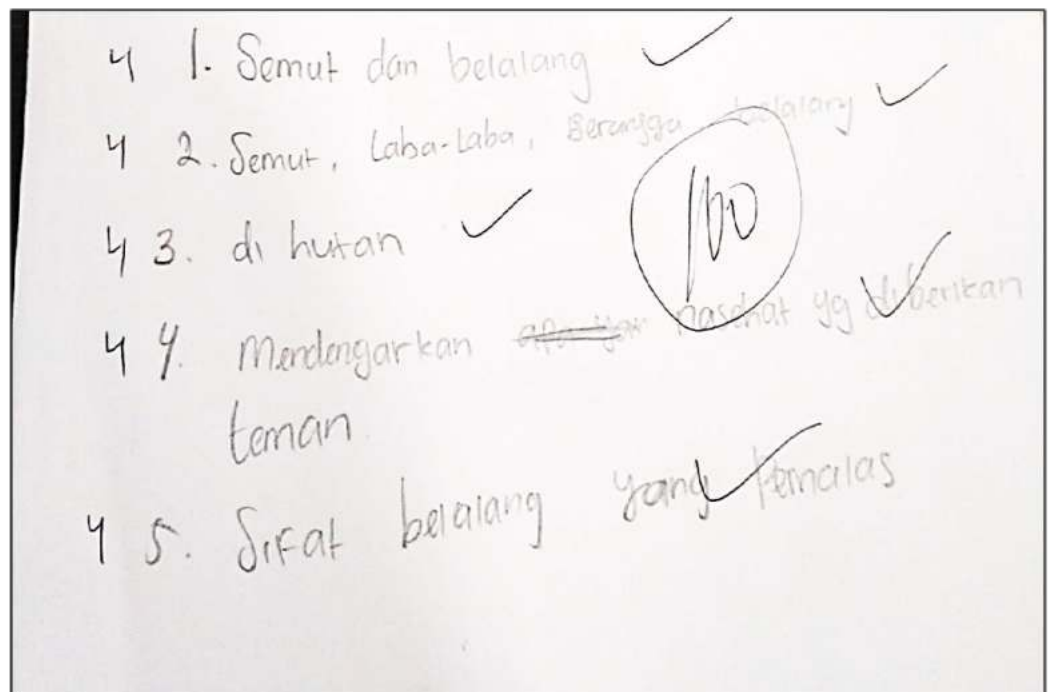 4 1. Semut dan belalang ✓
4 2. Semut, Laba-Laba, Serangga belalang ✓
4 3. di hutan ✓
100
4 4. Mendengarkan nasehat yg diberikan ✓
teman
4 5. Sifat belalang yang pemalas ✓